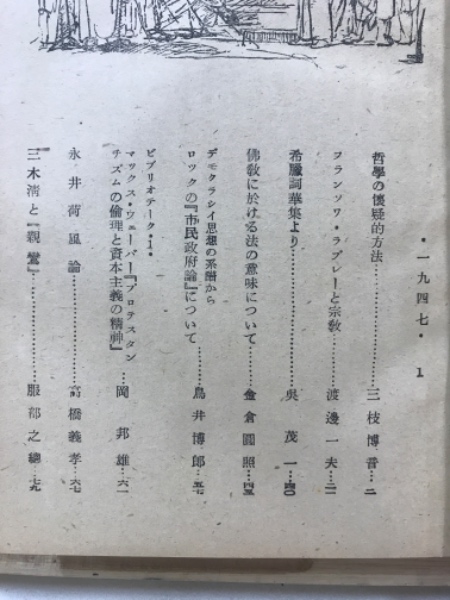 ・一九四七・1
哲學の懷疑的方法…………三枝博音…二
フランソワ・ラブレーと宗教………渡邊一夫…二二
希臘詞華集より…………吳茂一…四〇
佛敎に於ける法の意味について………金倉圓照…四五
デモクラシイ思想の系譜から
ロックの『市民政府論』について………鳥井博郎…五七
ビブリオテーク・1・
マックス・ウェーバー『プロテスタン
チズムの倫理と資本主義の精神』…岡邦雄…六一
永井荷風論…………高橋義孝…六七
三木淸と『親鸞』…………服部之總…七九